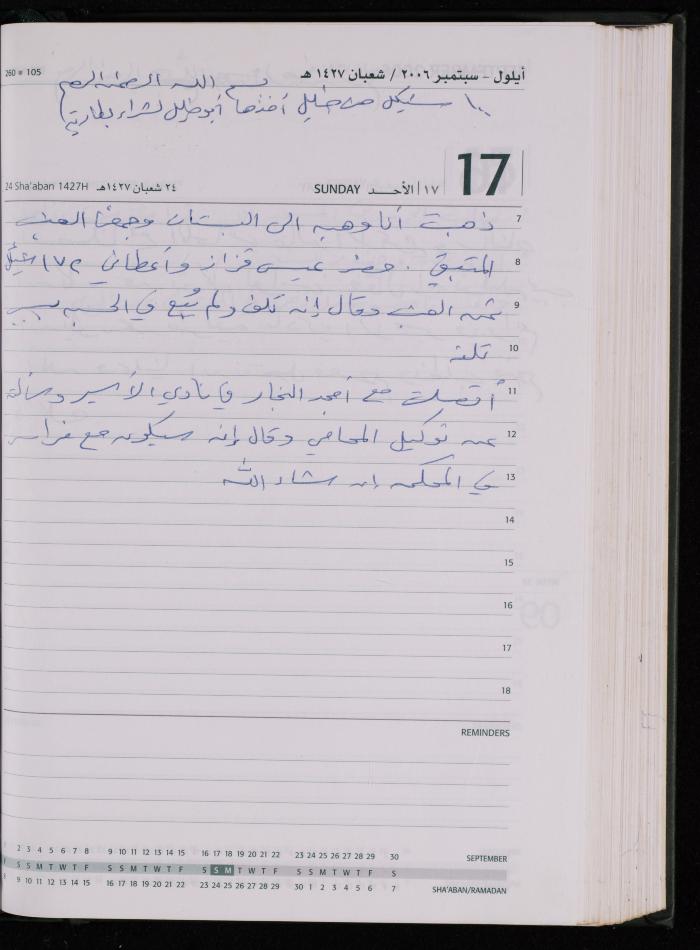 260 ■ 105
أيلول - سبتمبر ٢٠٠٦ / شعبان ١٤٢٧ هـ
بسم الله الرحمن الرحيم
١٠٠ شيكل من خليل أخذها أبو خليل لشراء بطارية
17
24 Sha'aban 1427H
٢٤ شعبان ١٤٢٧هـ
SUNDAY
١٧ | الأحـــد
7 ذهبت أنا وهبه الى البستان وجمعنا العنب
8 المتبقي . حضر عيسى قزاز وأعطاني ١٧٢ شيكل
9 ثمن العنب وقال إنه تلف ولم يُبع في الحسبه بسبب
10 تلفه
11 أتصلت مع أمجد النجار في نادي الأسير وسألته
12 عن توكيل المحامي وقال إنه سيكون مع فراس
13 في المحكمه إن شاء الله
14
15
16
17
18
REMINDERS
2 3 4 5 6 7 8 9 10 11 12 13 14 15 16 17 18 19 20 21 22 23 24 25 26 27 28 29 30 SEPTEMBER
S S M T W T F S S M T W T F S S M T W T F S S M T W T F S
9 10 11 12 13 14 15 16 17 18 19 20 21 22 23 24 25 26 27 28 29 30 1 2 3 4 5 6 7 SHA'ABAN/RAMADAN